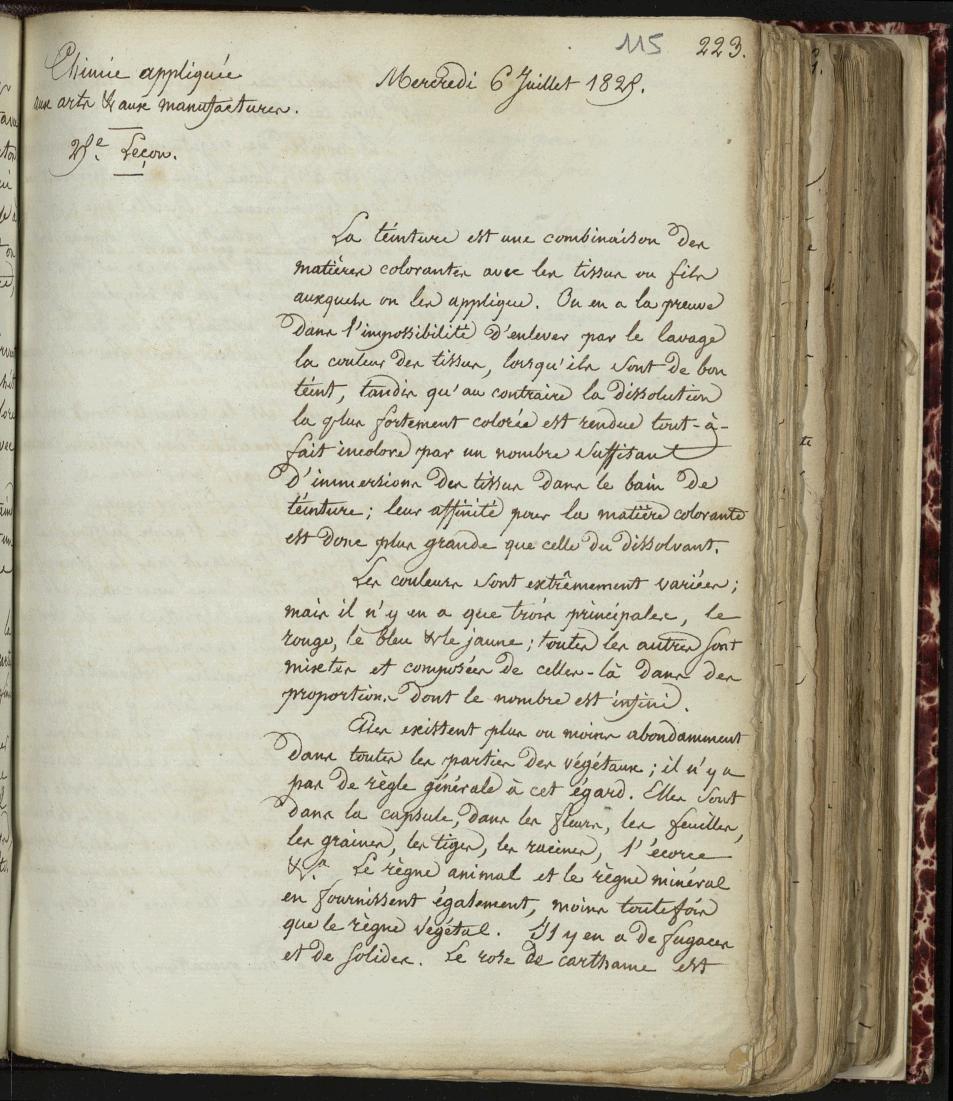 115 223.
Chimie appliquée
aux arts & aux manufactures.
Mercredi 6 Juillet 1825.
25.e Leçon.
La teinture est une combinaison des
matières colorantes avec les tissus ou fils
auxquels on les applique. On en a la preuve
dans l'impossibilité d'enlever par le lavage
la couleur des tissus, lorsqu'ils sont de bon
teint, tandis qu'au contraire la dissolution
la plus fortement colorée est rendue tout-à-
fait incolore par un nombre suffisant
d'immersions des tissus dans le bain de
teinture; leur affinité pour la matière colorante
est donc plus grande que celle du dissolvant.
Les couleurs sont extrêmement variées;
mais il n'y en a que trois principales, le
rouge, le bleu & le jaune; toutes les autres sont
mixtes et composées de celles-là dans des
proportions dont le nombre est infini.
Elles existent plus ou moins abondamment
dans toutes les parties des végétaux; il n'y a
pas de règle générale à cet égard. Elles sont
dans la capsule, dans les fleurs, les feuilles,
les graines, les tiges, les racines, l'écorce
&.a Le règne animal et le règne minéral
en fournissent également, moins toutefois
que le règne végétal. Il y en a de fugaces
et de solides. Le rose de carthame est